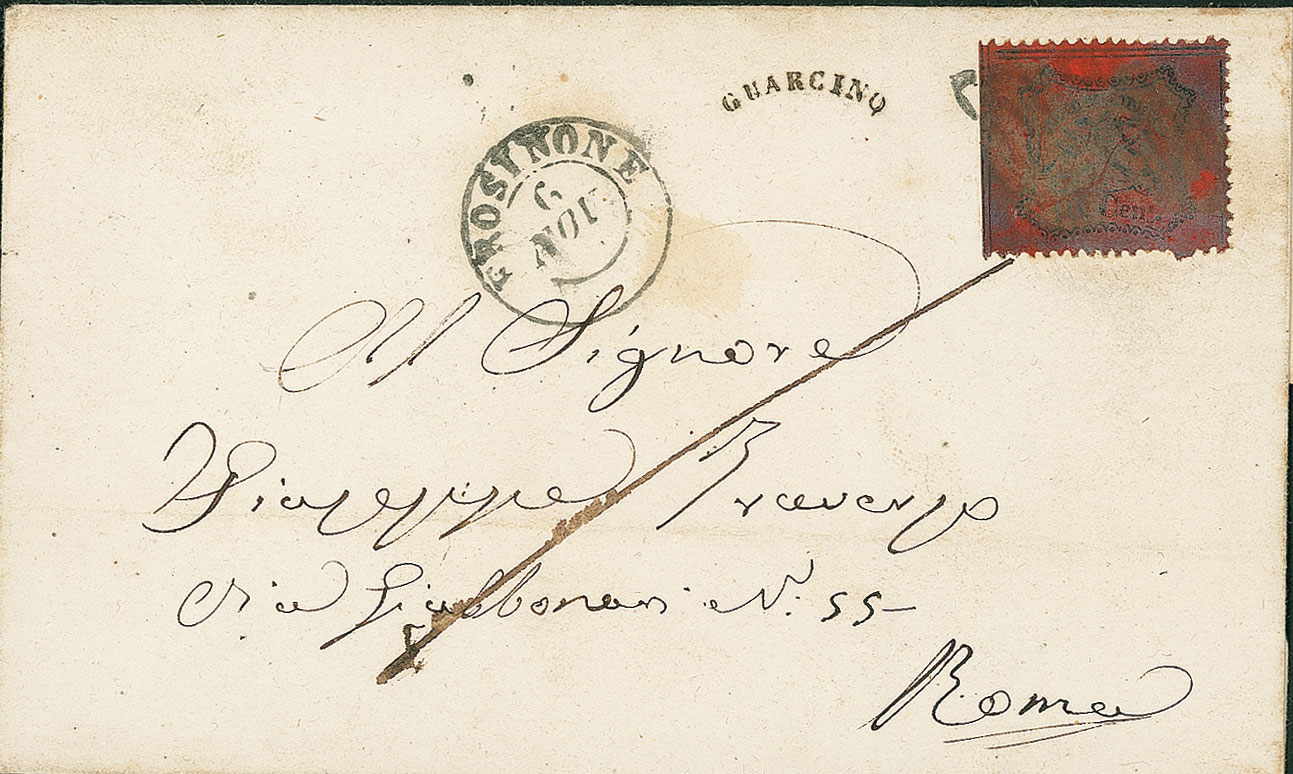 GUARCINO
FROSINONE
6
NOV
Cent
Al Signore
Giuseppe
Via Giubbonari N. 55
Roma